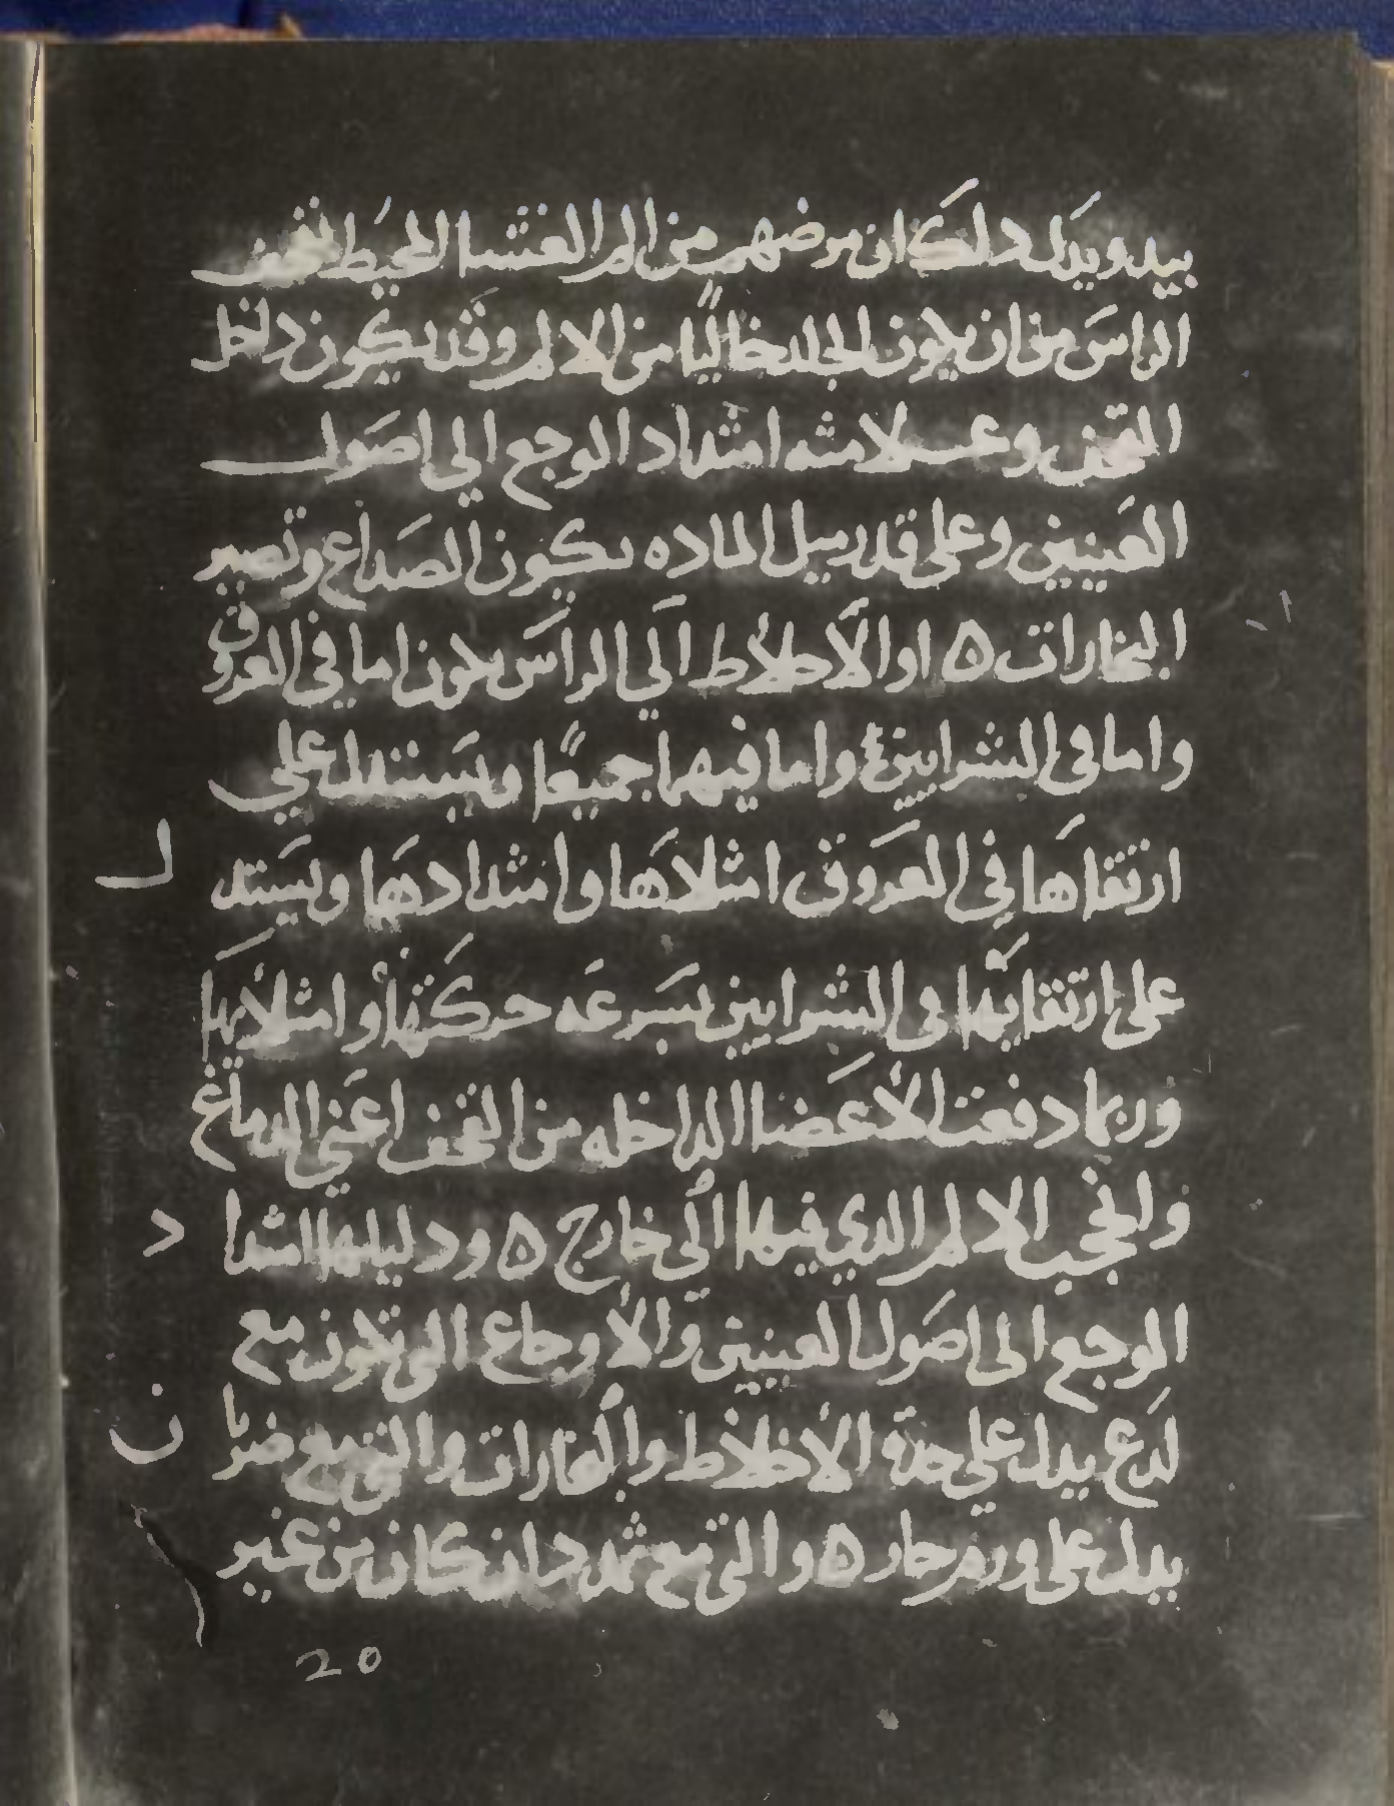 بيده ويدلك دلك ان مرضهم من الم الغشا المحيط بقحف
الراسَ من ان يكون الجلد خاليًا من الالم وقد يكون داخل
القحف وعــلامته امتداد الوجع الي اصَول
العَينين وعلى قدر ميل الماده يكون الصَداع وتصير
البخارات ه او الاخلاط الَي الراسَ يكون اما في العروق
واما في الشرايين واما فيهما جميعًا ويسَتدل علي
ارتقاها في العَروق امتلاهَا وامتدادهَا ويسَتد ل
على ارتقايها في الشرايين بسَرعَه حركتها وامتلايها
وربما دفعت الاعَضا الداخله من القحف اعَني الدماغ
والحجب الالم الدي فيها الَي خارج ه ودليلها امتدا د
الوجع الى اصَول العينين والاوجاع التي تكون مع
لدَع يدل علي حدة الاخلاط والبخارات والتي مع ضربا ن
يدل على ورم حار ه والتي مع تمدد ان كان من غير
20